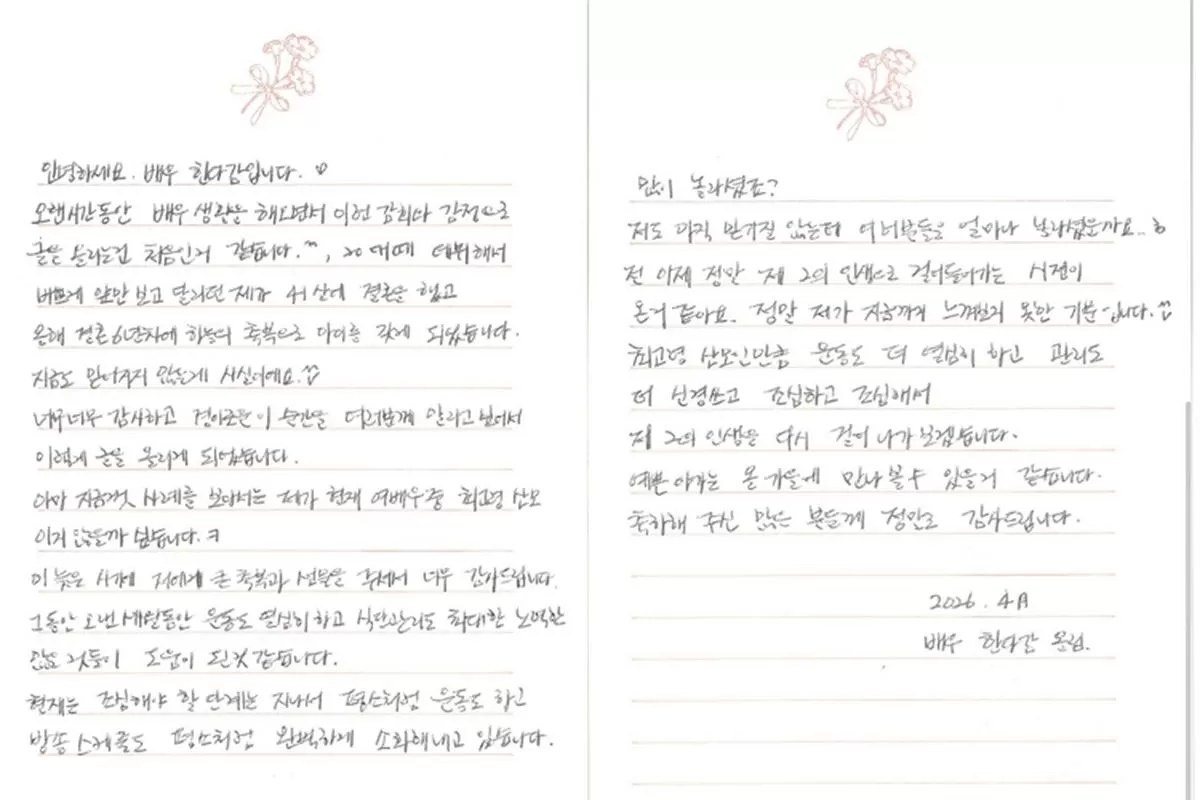 안녕하세요. 배우 한다감입니다. ♡
오랜시간동안 배우 생활을 해오면서 이런 감회와 감정으로
글을 올리는건 처음인거 같습니다.^^, 20대때 데뷔해서
바쁘게 앞만 보고 달리던 제가 41살에 결혼을 했고
올해 결혼6년차에 하늘의 축복으로 아이를 갖게 되었습니다.
지금도 믿어지지 않는게 사실이에요.
너무너무 감사하고 경이로운 이 순간을 여러분께 알리고 싶어서
이렇게 글을 올리게 되었습니다.
아마 지금껏 사례를 보아서는 제가 현재 여배우중 최고령 산모
이지 않을까 싶습니다.ㅋ
이 늦은 시기에 저에게 큰 축복과 선물을 주셔서 너무 감사드립니다.
그동안 오랜세월동안 운동도 열심히 하고 식단관리도 최대한 노력한
않은 것들이 도움이 된것 같습니다.
현재는 조심해야 할 단계는 지나서 평소처럼 운동도 하고
방송 스케줄도 평소처럼 완벽하게 소화해내고 있습니다.
많이 놀라셨죠?
저도 아직 믿겨질 않는데 여러분들은 얼마나 놀라셨을까요..ㅎ
전 이제 정말 제 2의 인생으로 걸어들어가는 시점이
온거 같아요. 정말 제가 지금까지 느껴보지 못한 기분입니다.
최고령 산모인만큼 운동도 더 열심히 하고 관리도
더 신경쓰고 조심하고 조심해서
제 2의 인생을 다시 걸어 나가 보겠습니다.
예쁜 아가는 올 가을에 만나 볼 수 있을거 같습니다.
축하해 주신 많은 분들께 정말로 감사드립니다.
2026. 4月
배우 한다감 올림.